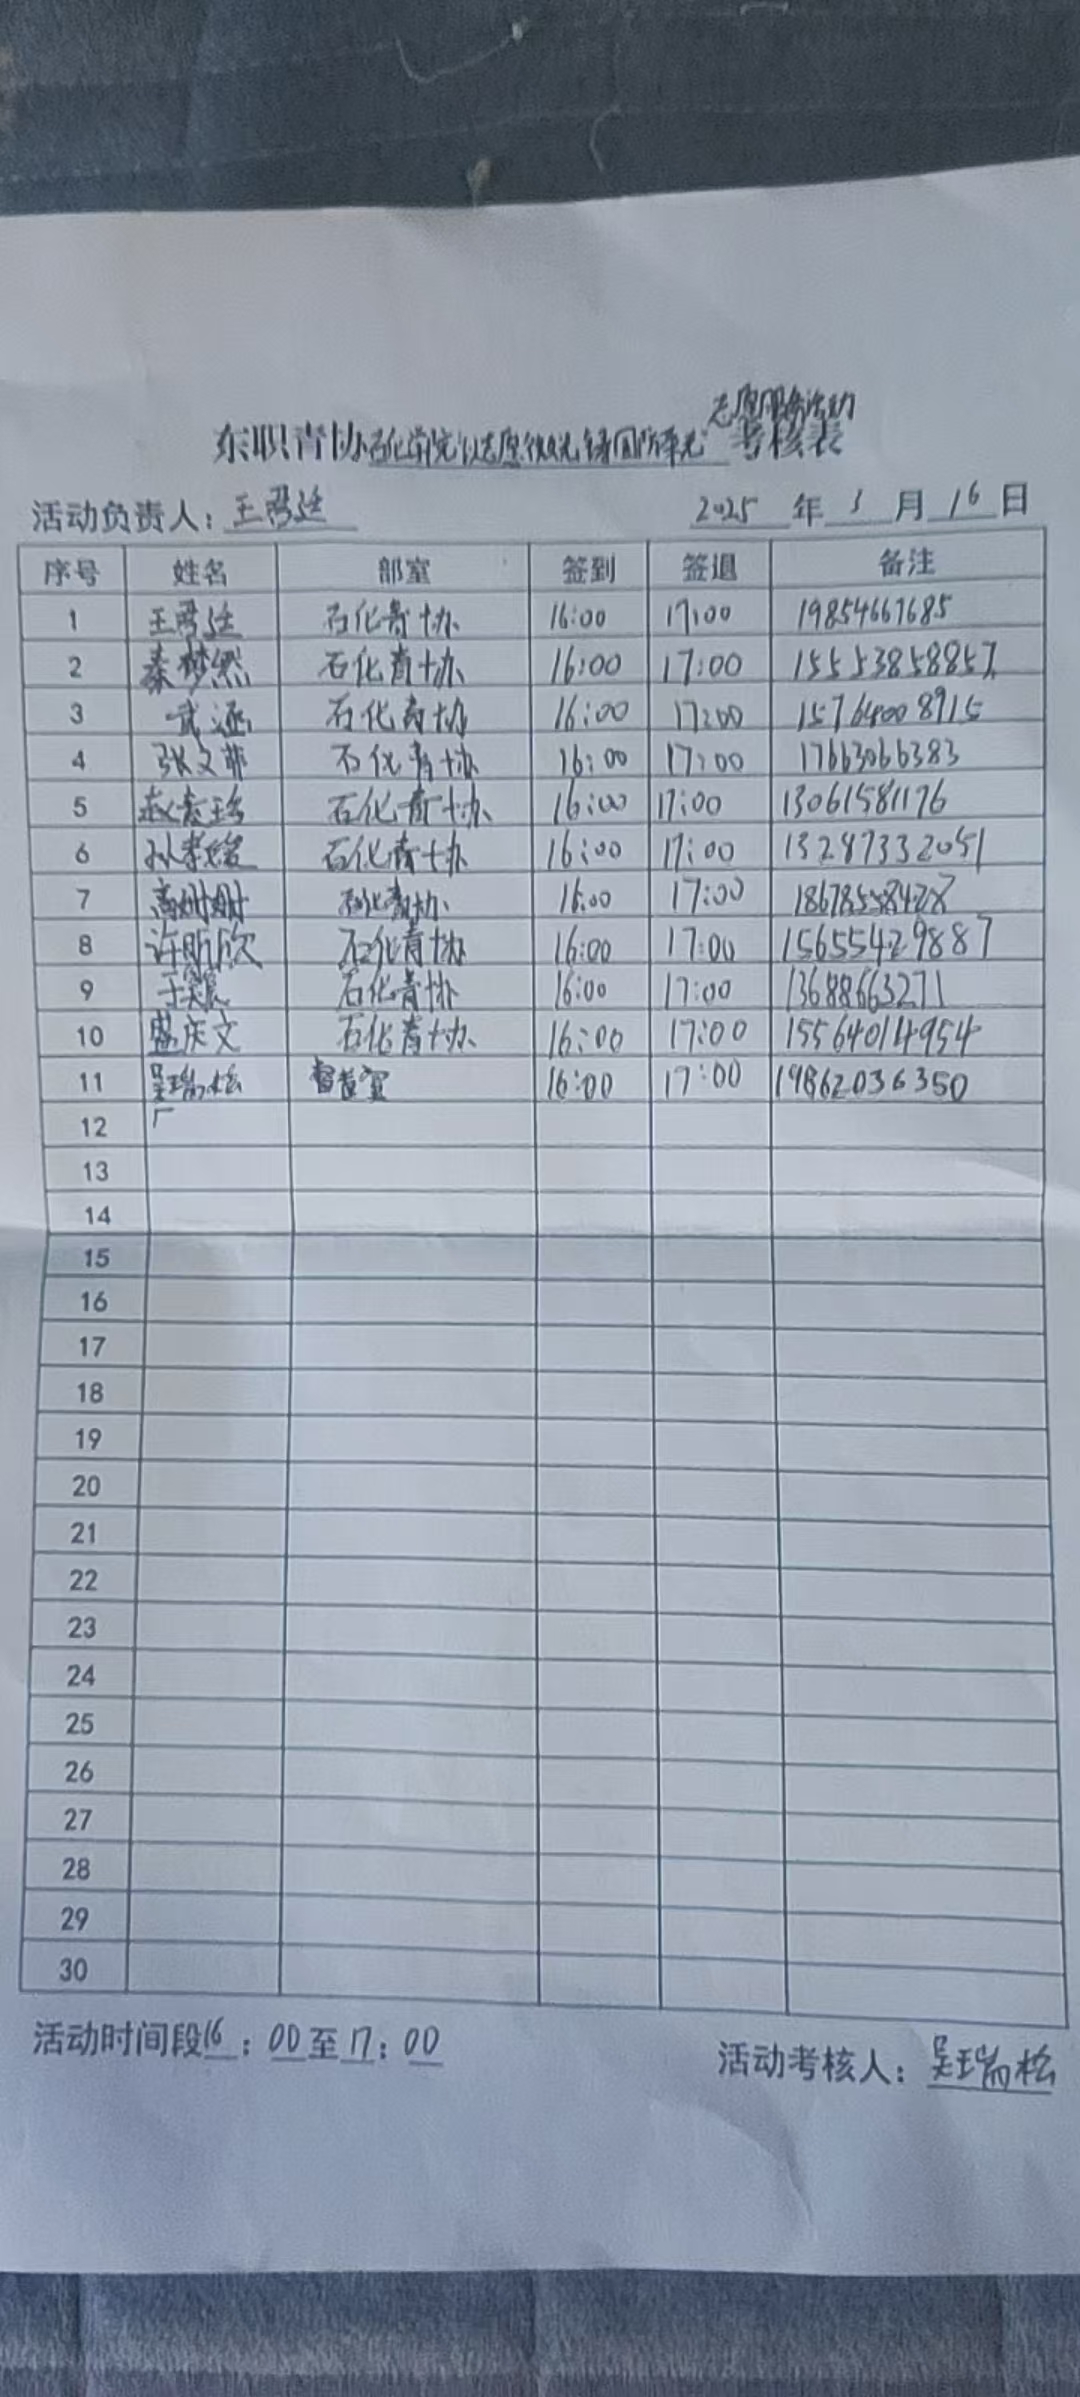 志愿服务活动
东职青协石化学院"以志愿微光 铸国防辉光"考核表
活动负责人：王君廷 2025 年 3 月 16 日
序号 姓名 部室 签到 签退 备注
1 王君廷 石化青协 16:00 17:00 19854667685
2 秦梦然 石化青协 16:00 17:00 15553858857
3 武涵 石化青协 16:00 17:00 15764008915
4 张文菲 石化青协 16:00 17:00 17663066383
5 石化青协 16:00 17:00 13061581176
6 石化青协 16:00 17:00 13287332051
7 高姗姗 石化青协 16:00 17:00 18678558428
8 许昕欣 石化青协 16:00 17:00 15655429887
9 石化青协 16:00 17:00 13688663271
10 盛庆文 石化青协 16:00 17:00 15564014954
11 吴瑞松 督查室 16:00 17:00 19862036350
12
13
14
15
16
17
18
19
20
21
22
23
24
25
26
27
28
29
30
活动时间段16：00至17：00
活动考核人：吴瑞松